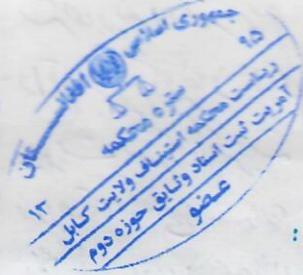 جمهوری اسلامی افغانستان
ستره محکمه
ریاست محکمه استیناف ولایت کابل
آمریت ثبت اسناد وثایق حوزه دوم
عضو
۹۵
۱۳